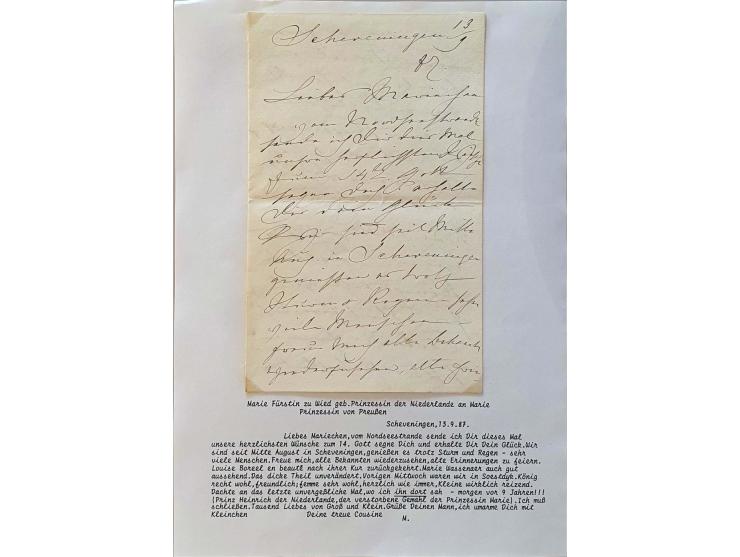 Scheveningen 13/9
87.
Liebes Mariechen
vom Nordseestrande
sende ich Dir dies Mal
unsere herzlichsten
zum 14. Gott
segne Dich & erhalte
Dir Dein Glück
Wir sind seit Mitte
Aug. in Scheveningen
genießen es trotz
Sturm & Regen – sehr
viele Menschen –
freue mich alle Bekannt
wiederzusehen, alte
Marie Fürstin zu Wied geb.Prinzessin der Niederlande an Marie
Prinzessin von Preußen
Scheveningen,13.9.87.
Liebes Mariechen,vom Nordseestrande sende ich Dir dieses Mal
unsere herzlichsten Wünsche zum 14. Gott segne Dich und erhalte Dir Dein Glück.Wir
sind seit Mitte August in Scheveningen,genießen es trotz Sturm und Regen - sehr
viele Menschen.Freue mich,alle Bekannten wiederzusehen,alte Erinnerungen zu feiern.
Louise Boreel en beauté nach ihrer Kur zurückgekehrt.Marie Wassenaer auch gut
aussehend.Das dicke Theil unverändert.Vorigen Mittwoch waren wir in Soestdyk.König
recht wohl,freundlich;femme sehr wohl,herzlich wie immer,Kleine wirklich reizend.
Dachte an das letzte unvergeßliche Mal,wo ich ihn dort sah - morgen vor 9 Jahren!!!
(Prinz Heinrich der Niederlande,der verstorbene Gemahl der Prinzessin Marie).Ich muß
schließen.Tausend Liebes von Groß und Klein.Grüße Deinen Mann,ich umarme Dich mit
Kleinchen Deine treue Cousine
M.